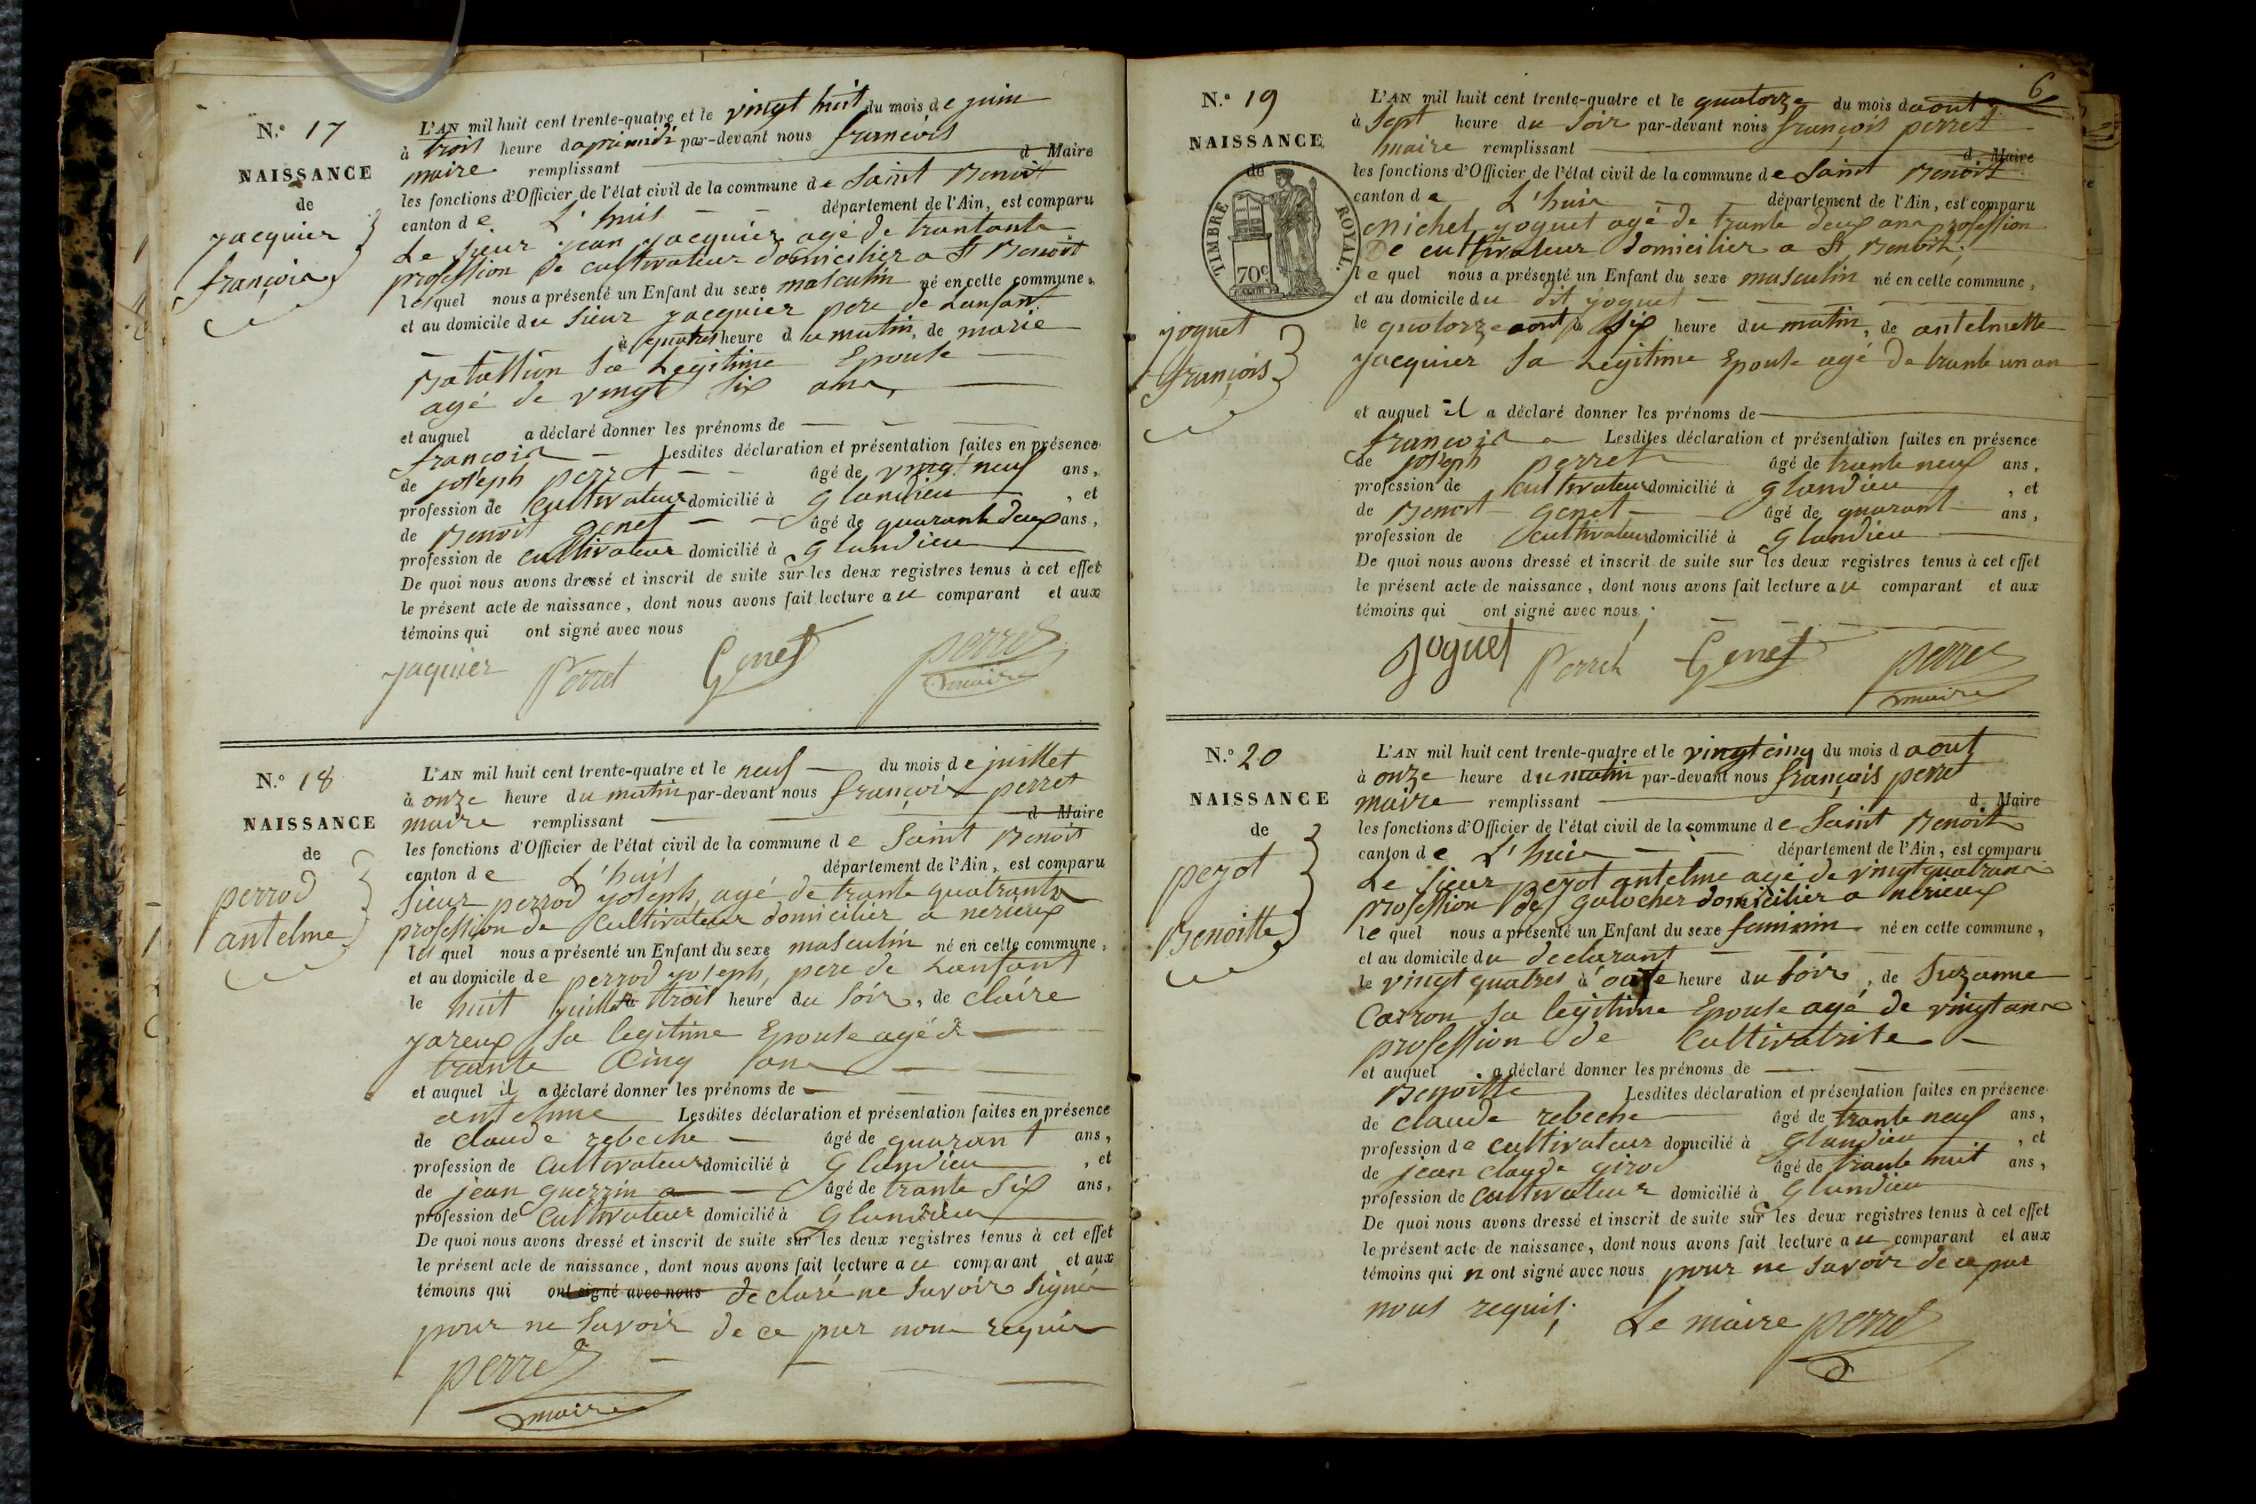 N.º 17
NAISSANCE
de
jacquier
françois
L'AN mil huit cent trente-quatre et le vingt huit du mois de juin
à trois heure daprimidi par-devant nous françois
maire remplissant d Maire
les fonctions d'Officier de l'état civil de la commune de Saint Benoit
canton de L'huis département de l'Ain, est comparu
Le sieur jean jacquier agé de trantants
profession de cultivateur domicilier a St Benoit
lequel nous a présenté un Enfant du sexe masculin né en cette commune,
et au domicile du sieur jacquier pere de Lanfant
à quatres heure du matin, de marie
Batallion sa Legitime Epouse
agé de vingt six ans
et auquel a déclaré donner les prénoms de
françois Lesdites déclaration et présentation faites en présence
de joseph perret âgé de vingt neuf ans,
profession de cultivateur domicilié à glandieu, et
de Benoit genet âgé de quarante deux ans,
profession de cultivateur domicilié à glandieu
De quoi nous avons dressé et inscrit de suite sur les deux registres tenus à cet effet
le présent acte de naissance, dont nous avons fait lecture au comparant et aux
témoins qui ont signé avec nous
jaquier Perret Genet perret
maire
N.º 18
NAISSANCE
de
perrod
antelme
L'AN mil huit cent trente-quatre et le neuf du mois de juillet
à onze heure du matin par-devant nous françois perret
maire remplissant d Maire
les fonctions d'Officier de l'état civil de la commune de Saint Benoit
canton de L'huis département de l'Ain, est comparu
sieur perrod joseph agé de trante quatrants
profession de cultivateur domicilier a nerieux
lequel nous a présenté un Enfant du sexe masculin né en cette commune,
et au domicile de perrod joseph, pere de Lanfant
le huit juillet à trois heure du soir, de claire
jareux sa legitime Epouse agé de
trante cinq ans
et auquel il a déclaré donner les prénoms de
antelme Lesdites déclaration et présentation faites en présence
de claude rebeche âgé de quarant ans,
profession de cultivateur domicilié à Glandieu, et
de jean guerrin âgé de trante six ans,
profession de cultivateur domicilié à Glandieu
De quoi nous avons dressé et inscrit de suite sur les deux registres tenus à cet effet
le présent acte de naissance, dont nous avons fait lecture au comparant et aux
témoins qui ont signé avec nous declaré ne savoir signé
pour ne savoir de ce par nous requis
perret
maire
6
N.º 19
NAISSANCE
de
TIMBRE ROYAL.
70c
joguet
françois
L'AN mil huit cent trente-quatre et le quatorze du mois daout
à sept heure du soir par-devant nous françois perret
maire remplissant d Maire
les fonctions d'Officier de l'état civil de la commune de Saint Benoit
canton de L'huis département de l'Ain, est comparu
michel joguet agé de trante deux ans profession
De cultivateur domicilier a St Benoit;
lequel nous a présenté un Enfant du sexe masculin né en cette commune,
et au domicile du dit joguet
le quatorze aout à six heure du matin, de antelmette
jacquier sa Legitime Epouse agé de trante un an
et auquel il a déclaré donner les prénoms de
françois Lesdites déclaration et présentation faites en présence
de joseph perret âgé de trante neuf ans,
profession de cultivateur domicilié à glandieu, et
de Benoit genet âgé de quarant ans,
profession de cultivateur domicilié à Glandieu
De quoi nous avons dressé et inscrit de suite sur les deux registres tenus à cet effet
le présent acte de naissance, dont nous avons fait lecture au comparant et aux
témoins qui ont signé avec nous;
Joguet Perret Genet perret
maire
N.º 20
NAISSANCE
de
pezot
Benoitte
L'AN mil huit cent trente-quatre et le vingt cinq du mois d aout
à onze heure du matin par-devant nous français perret
maire remplissant d Maire
les fonctions d'Officier de l'état civil de la commune de Saint Benoit
canton de L'huis département de l'Ain, est comparu
Le sieur pezot antelme agé de vingt quatrans
profession de galocher domicilier a nerieux
lequel nous a présenté un Enfant du sexe faminin né en cette commune,
et au domicile du declarant
le vingt quatres à onze heure du soir, de Suzanne
Carron sa legitime Epouse agé de vingt ans
profession de Cultivatrise
et auquel a déclaré donner les prénoms de
Benoitte Lesdites déclaration et présentation faites en présence
de claude rebeche âgé de trante neuf ans,
profession de cultivateur domicilié à Glandieu, et
de jean claude girod âgé de trante huit ans,
profession de cultivateur domicilié à Glandieu
De quoi nous avons dressé et inscrit de suite sur les deux registres tenus à cet effet
le présent acte de naissance, dont nous avons fait lecture au comparant et aux
témoins qui n ont signé avec nous pour ne savoir de ce par
nous requis; Le maire perret